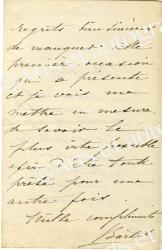 Regrets bien sincères
de manquer cette
première occasion
qui se présente
et je vais me
mettre en mesure
de savoir le
plus vite possible
afin d'être toute
prête pour une
autre fois.
Mille compliments
Bartet